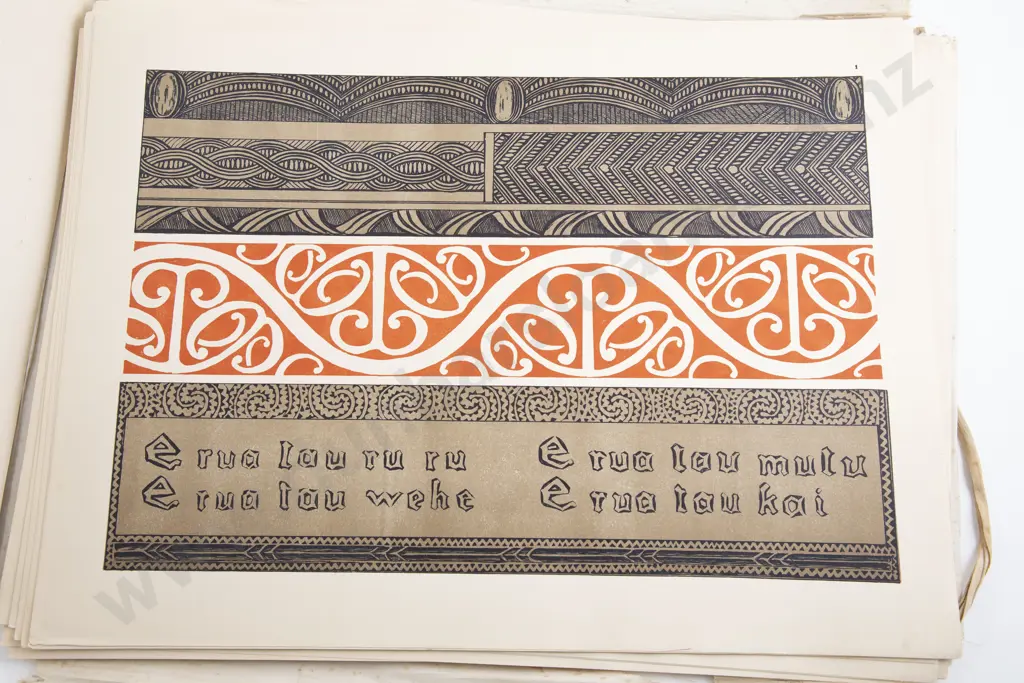 1
E rua tau ru ru
E rua tau wehe
E rua tau mutu
E rua tau kai